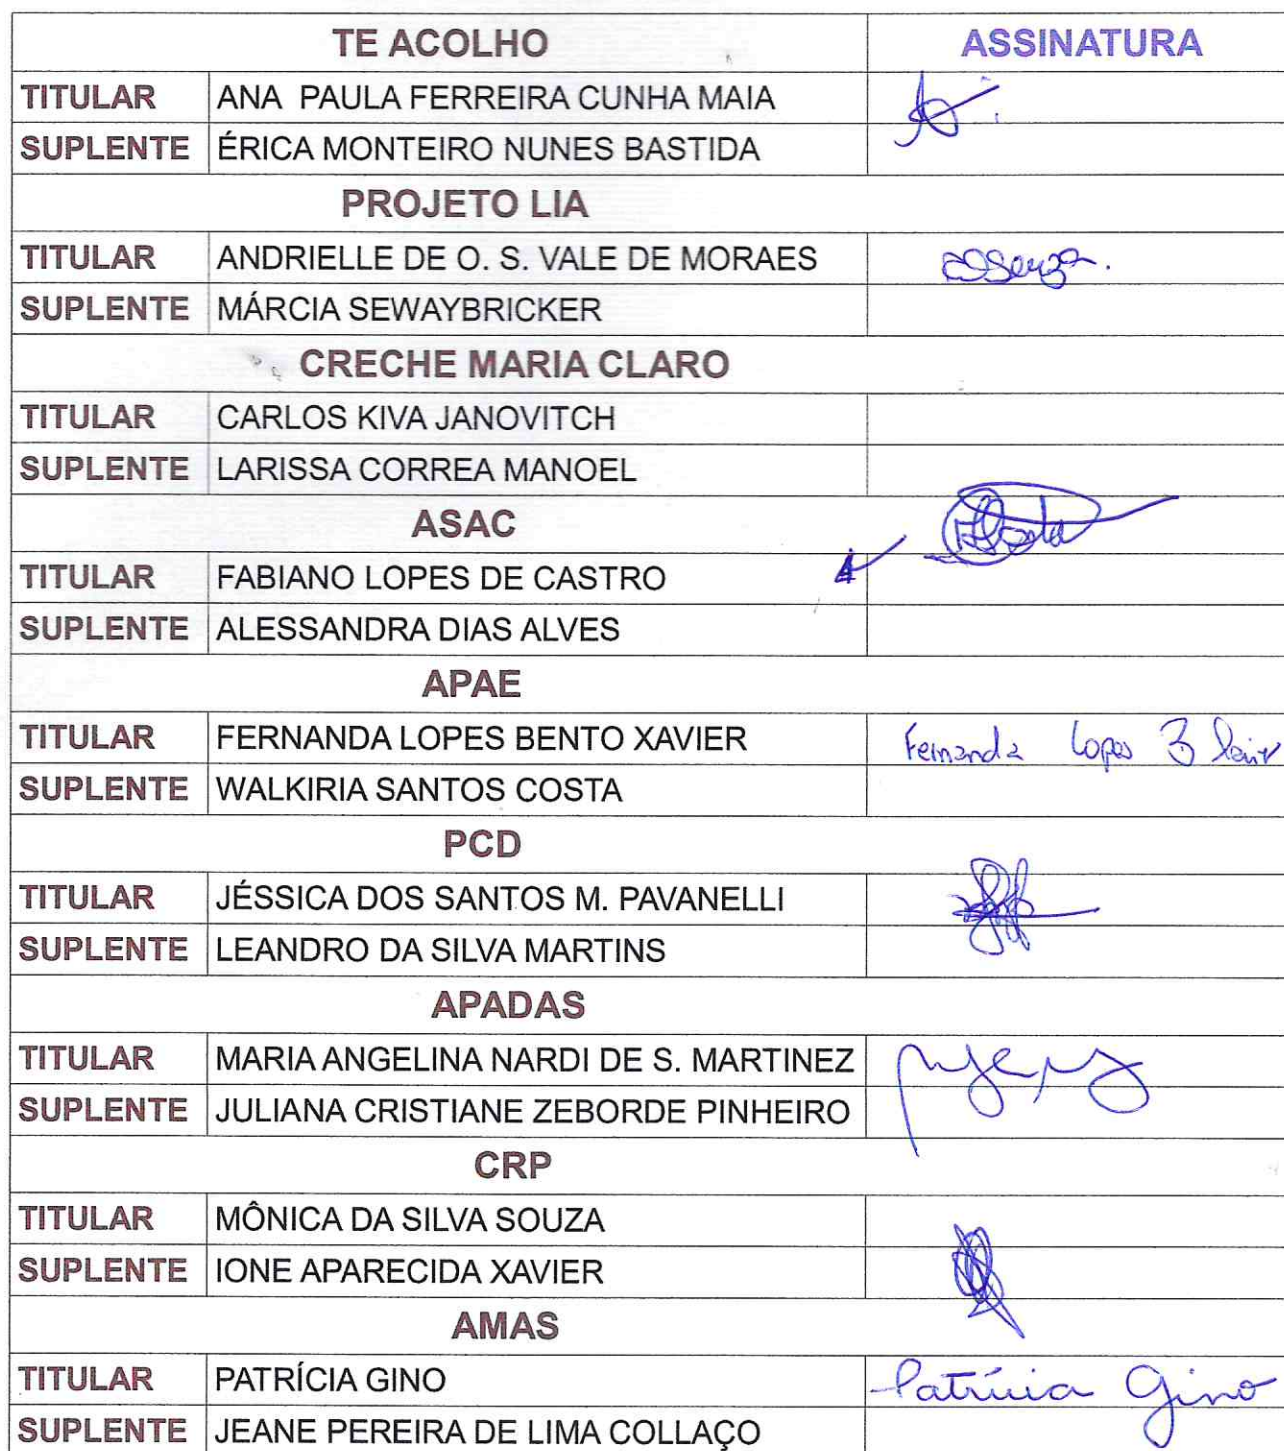 TE ACOLHO ASSINATURA
TITULAR ANA PAULA FERREIRA CUNHA MAIA
SUPLENTE ÉRICA MONTEIRO NUNES BASTIDA
PROJETO LIA
TITULAR ANDRIELLE DE O. S. VALE DE MORAES
SUPLENTE MÁRCIA SEWAYBRICKER
CRECHE MARIA CLARO
TITULAR CARLOS KIVA JANOVITCH
SUPLENTE LARISSA CORREA MANOEL
ASAC
TITULAR FABIANO LOPES DE CASTRO
SUPLENTE ALESSANDRA DIAS ALVES
APAE
TITULAR FERNANDA LOPES BENTO XAVIER Fernanda Lopes B
SUPLENTE WALKIRIA SANTOS COSTA
PCD
TITULAR JÉSSICA DOS SANTOS M. PAVANELLI
SUPLENTE LEANDRO DA SILVA MARTINS
APADAS
TITULAR MARIA ANGELINA NARDI DE S. MARTINEZ
SUPLENTE JULIANA CRISTIANE ZEBORDE PINHEIRO
CRP
TITULAR MÔNICA DA SILVA SOUZA
SUPLENTE IONE APARECIDA XAVIER
AMAS
TITULAR PATRÍCIA GINO Patrícia Gino
SUPLENTE JEANE PEREIRA DE LIMA COLLAÇO